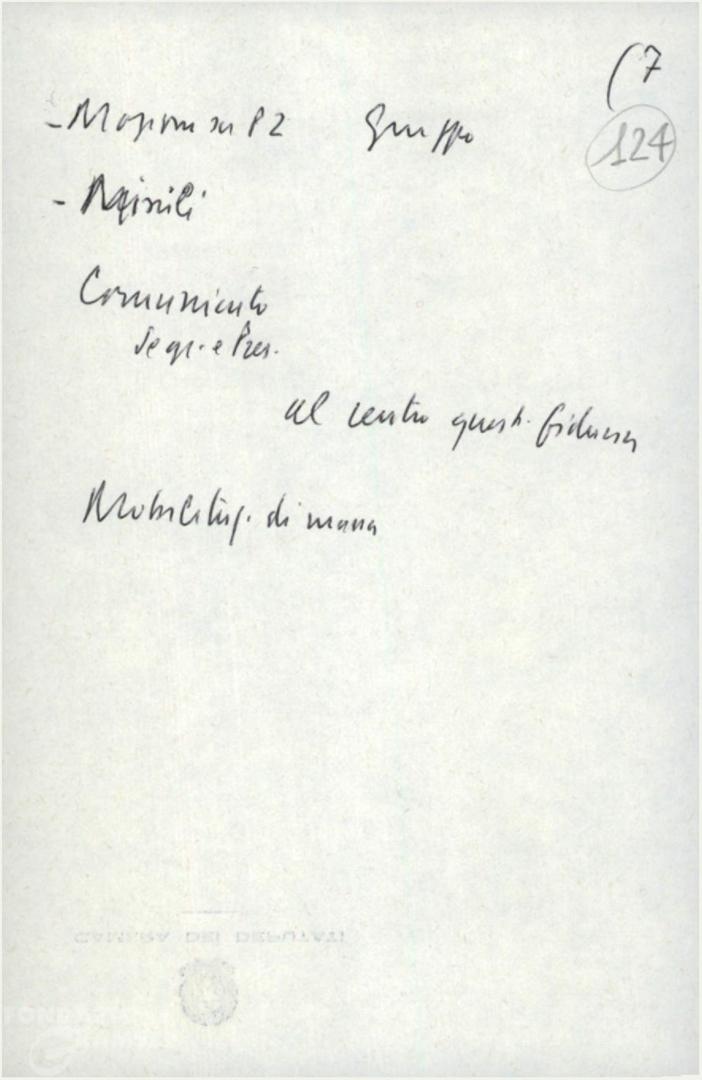 (7
124
- Mozione su P2 Gruppo
- Missili
Comunicato
Segr. e Pres.
al centro quest. fiducia
Mobilitaz. di massa
CAMERA DEI DEPUTATI
FONDAZ